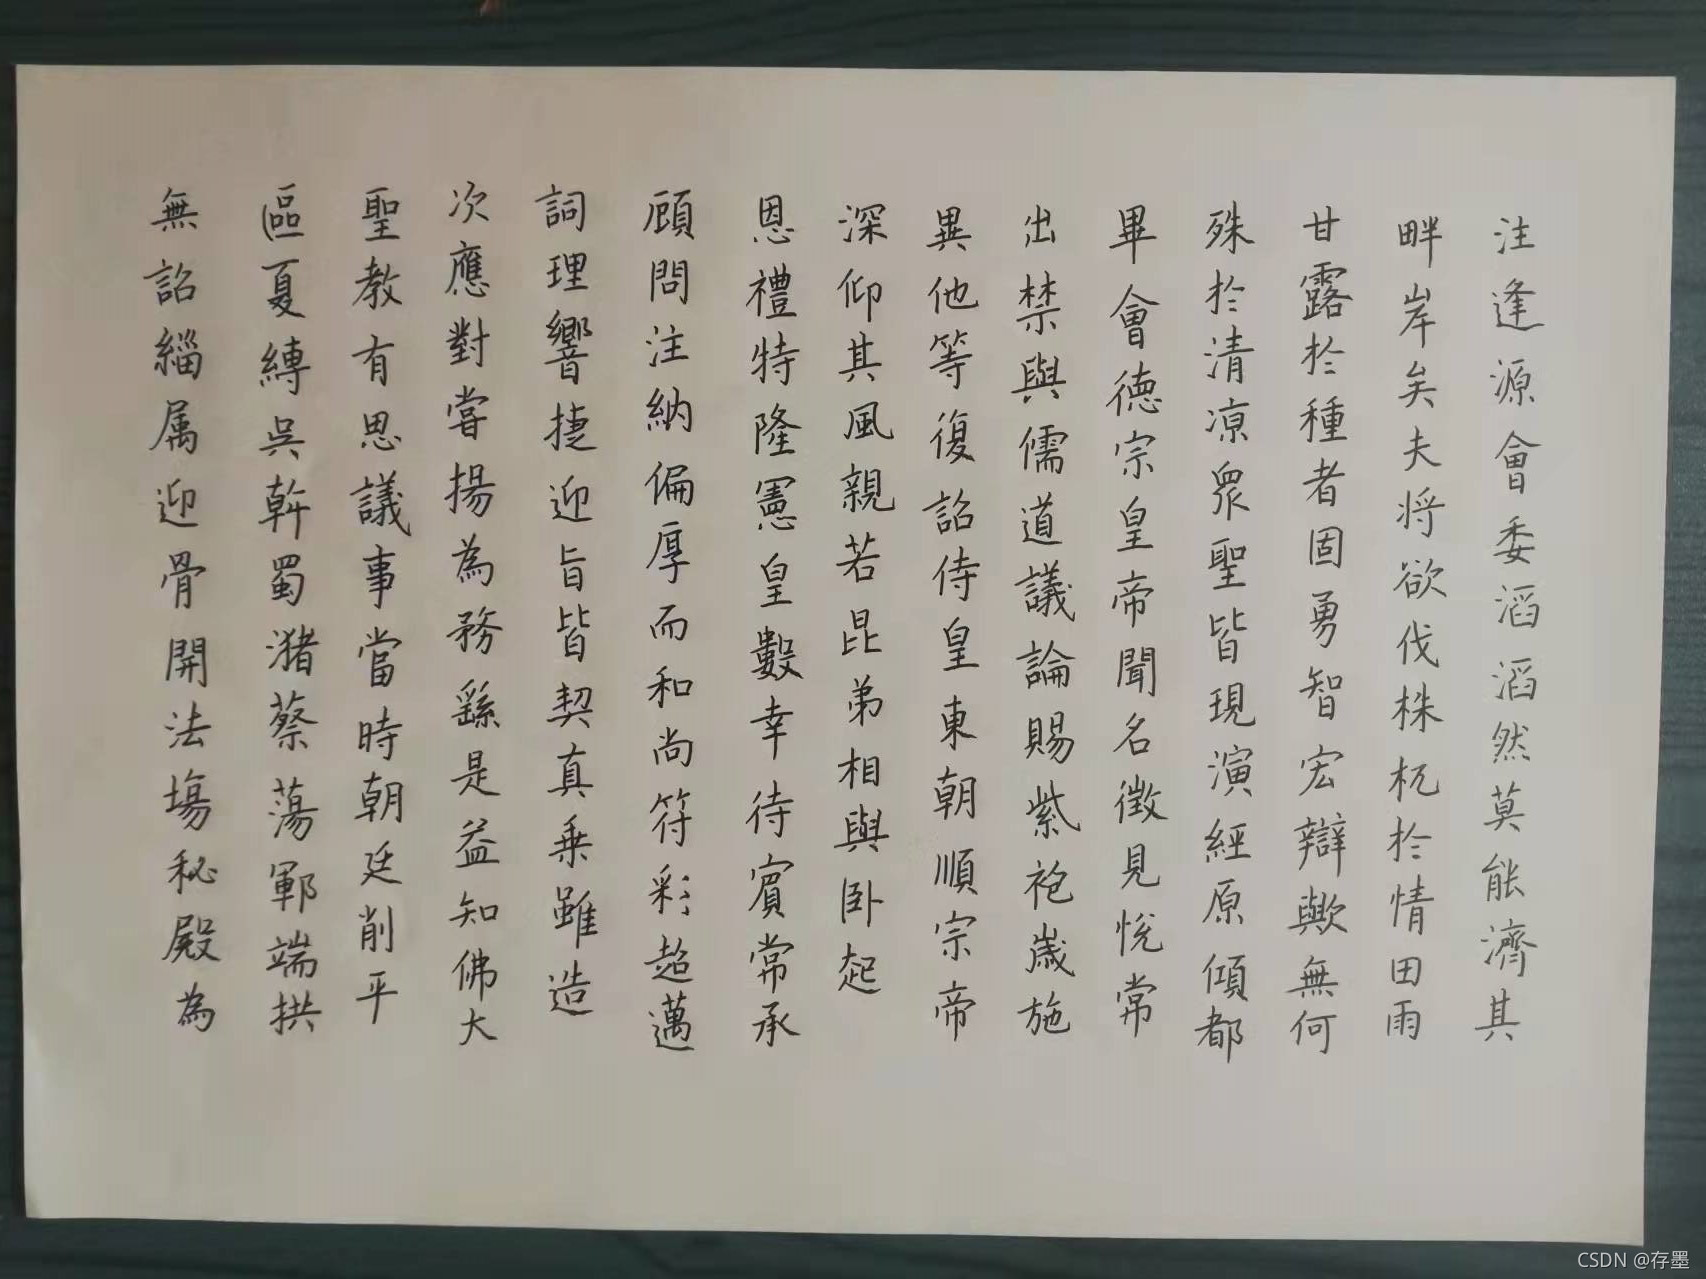 注逢源會委滔滔然莫能濟其
畔岸矣夫将欲伐株杌扵情田雨
甘露扵種者固勇智宏辯歟無何
殊扵清凉衆聖皆現演經原傾都
畢會德宗皇帝聞名徵見悅常
出禁與儒道議論賜紫袍歲施
異他等復詔侍皇東朝順宗帝
深仰其風親若昆弟相與卧起
恩禮特隆憲皇數幸待賓常承
顧問注納偏厚而和尚符彩超邁
詞理響捷迎旨皆契真乘雖造
次應對甞揚為務繇是益知佛大
聖教有思議事當時朝廷削平
區夏縛吳斡蜀潴蔡蕩鄆端拱
無詔緇属迎骨開法場秘殿為
CSDN @存墨